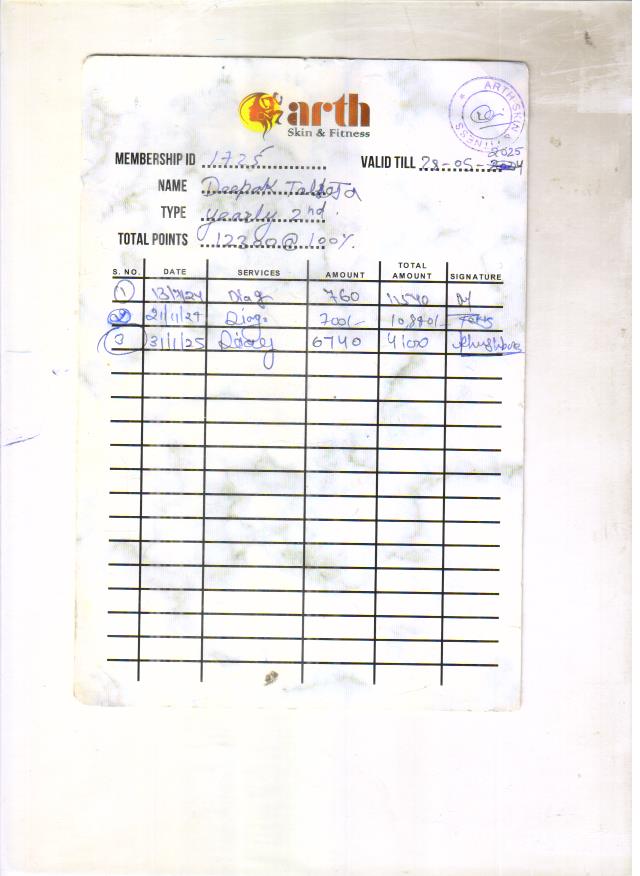 arth
Skin & Fitness
ARTH SKIN & FITNESS
MEMBERSHIP ID 1725
VALID TILL 28-05-2025
NAME Deepak
TYPE Yearly 2nd
TOTAL POINTS 12300 @ 100%
S. NO. DATE SERVICES AMOUNT TOTAL AMOUNT SIGNATURE
1 13/7/24 Diag 760 11540
2 21/11/24 Diag. 700/- 10,840/-
3 31/1/25 6740 4100